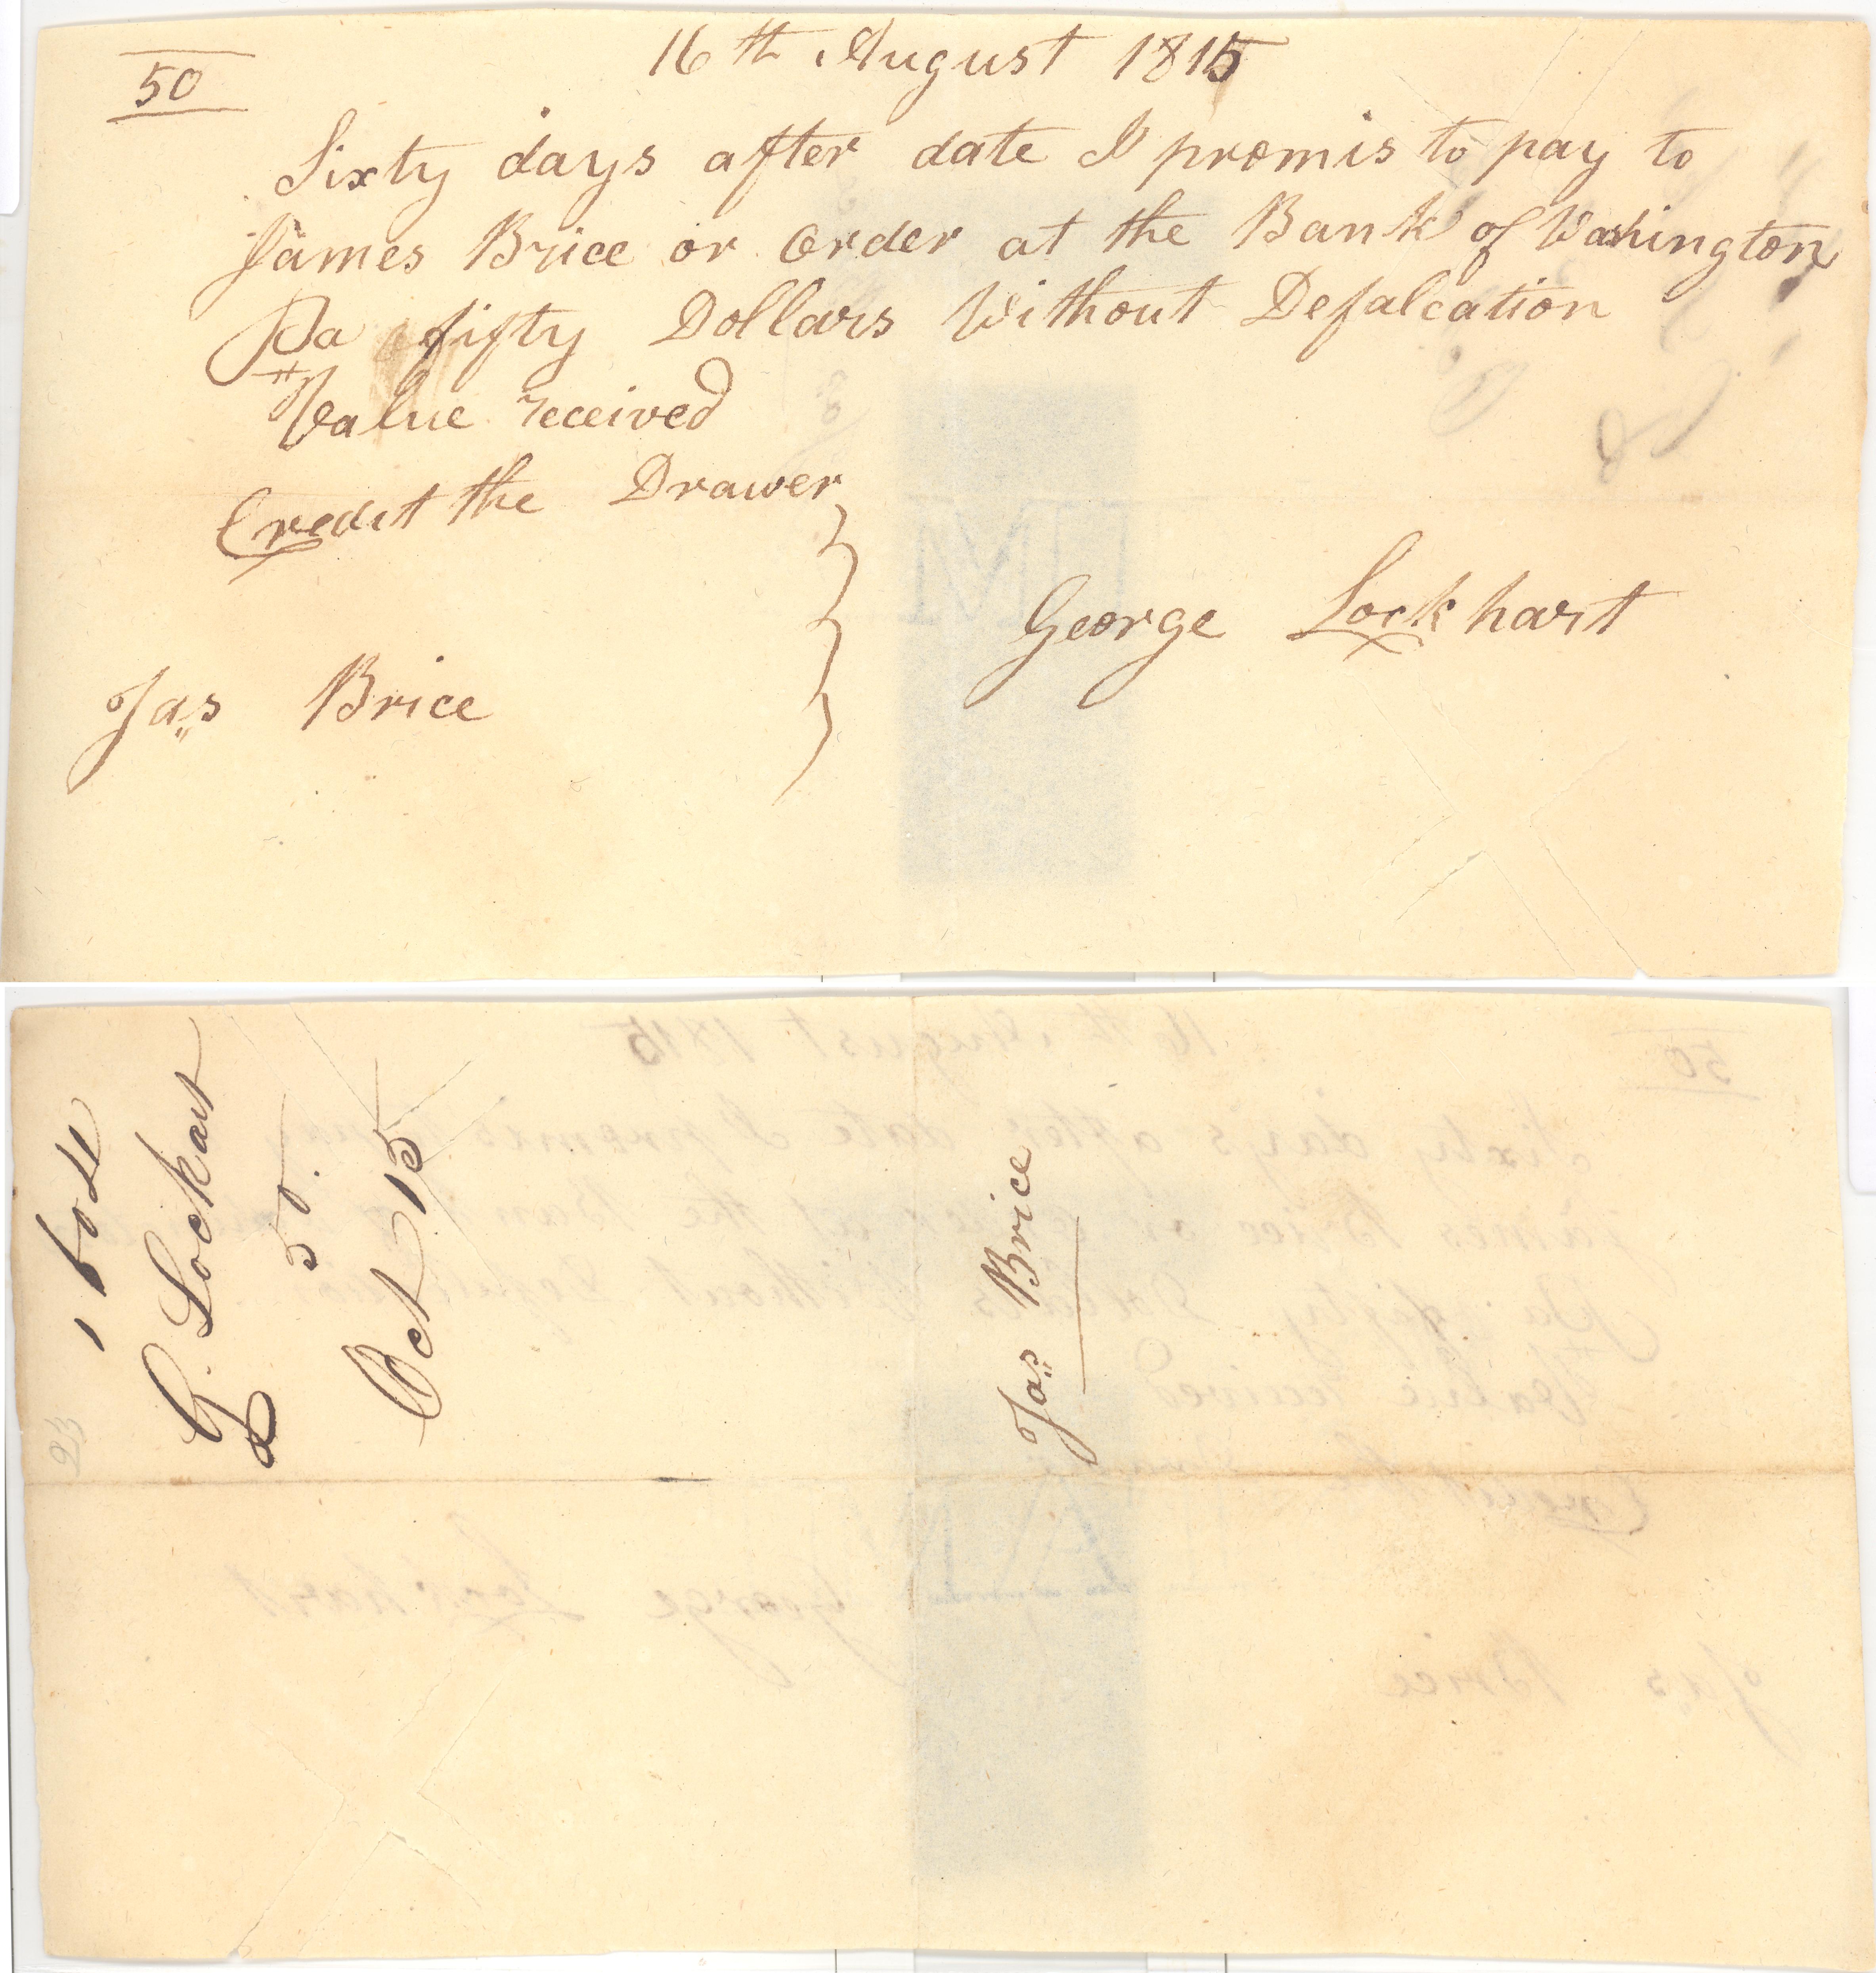 50
16th August 1815
Sixty days after date I promis to pay to
James Brice or Order at the Bank of Washington
Pa fifty Dollars Without Defalcation
Value received
Credit the Drawer
George Lockhart
Jas Brice
G. Lockart
50.
Oct 15
Jas Brice